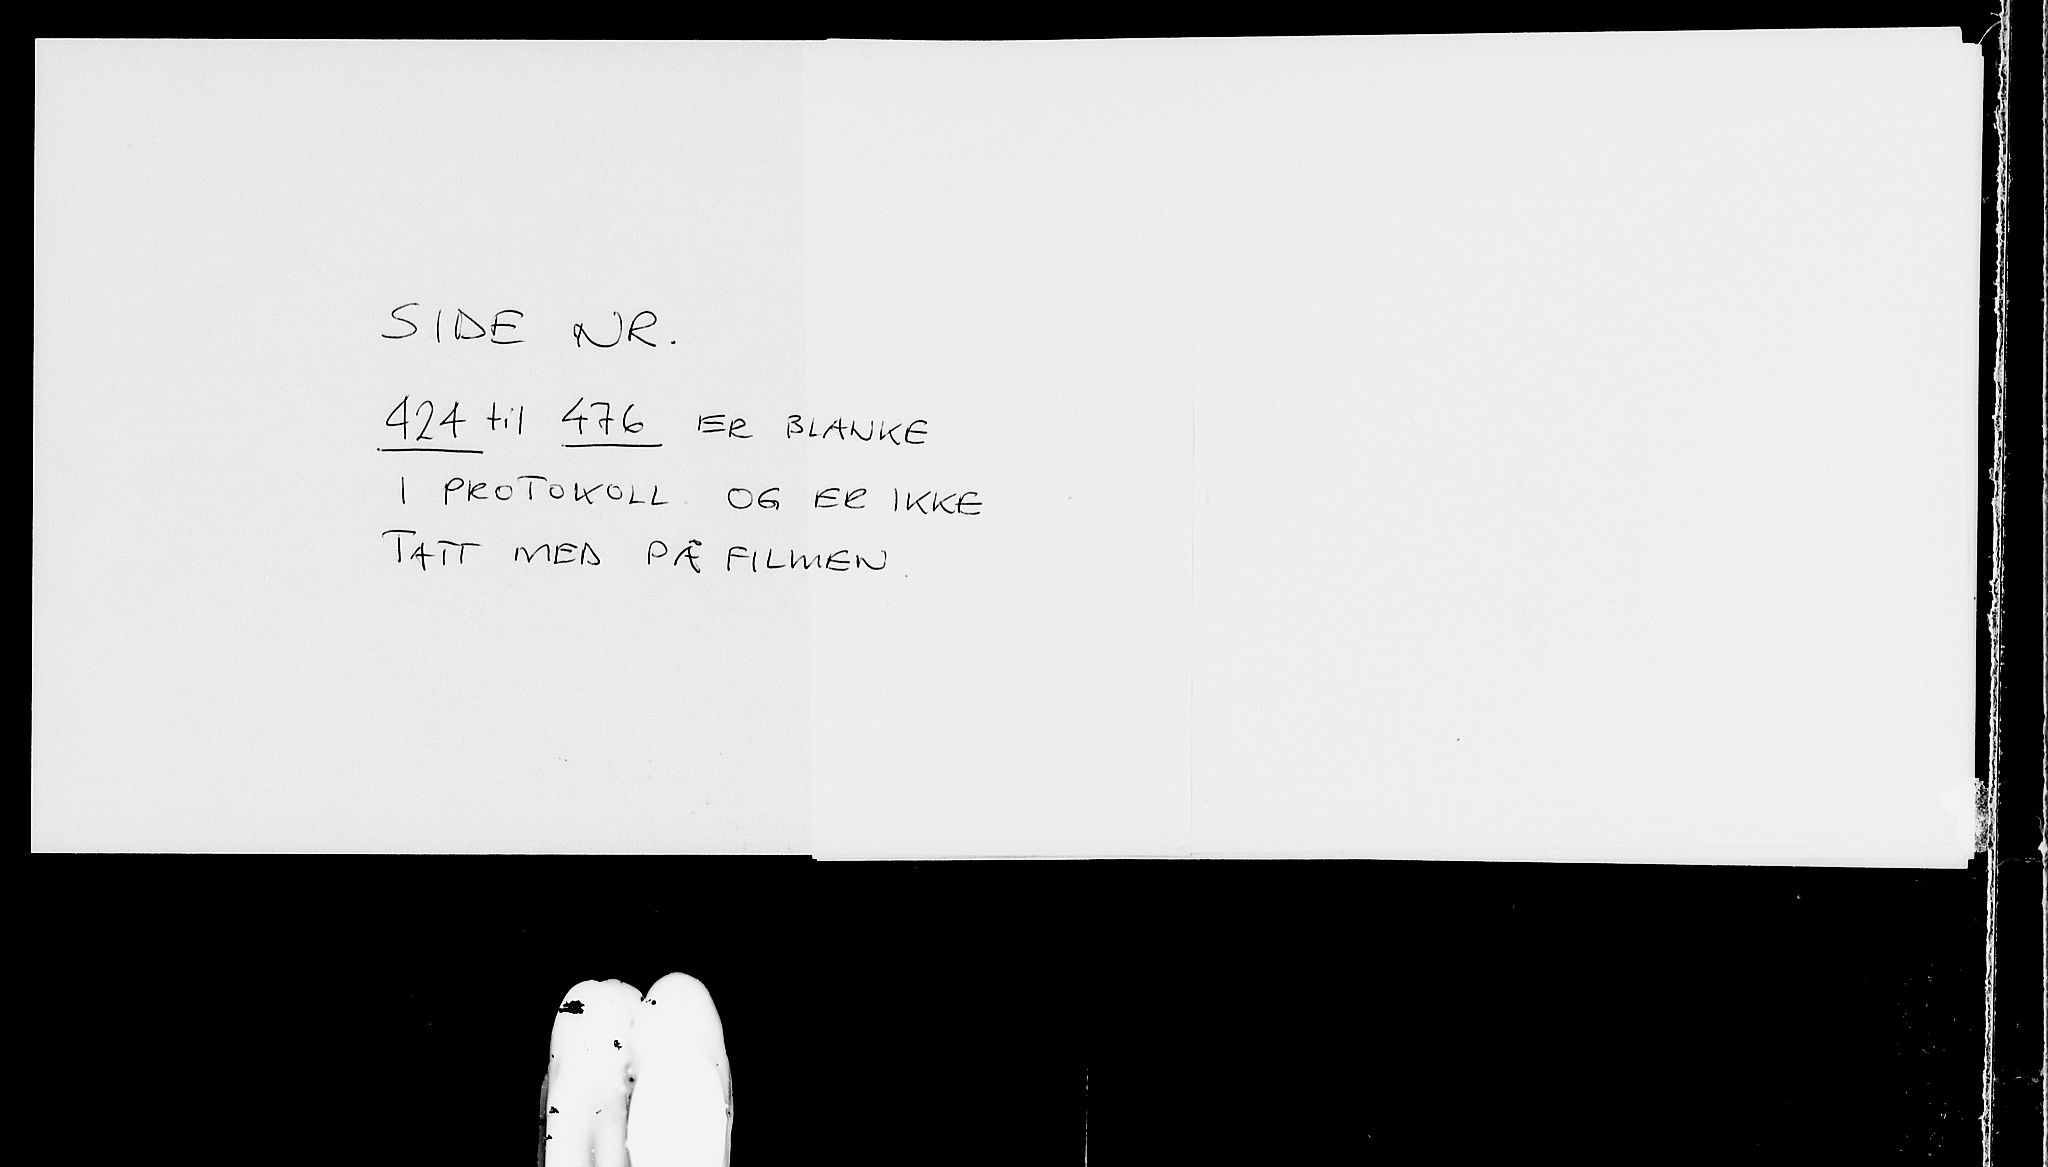 SIDE NR.
424 til 476 ER BLANKE
I PROTOKOLL OG ER IKKE
TATT MED PÅ FILMEN.